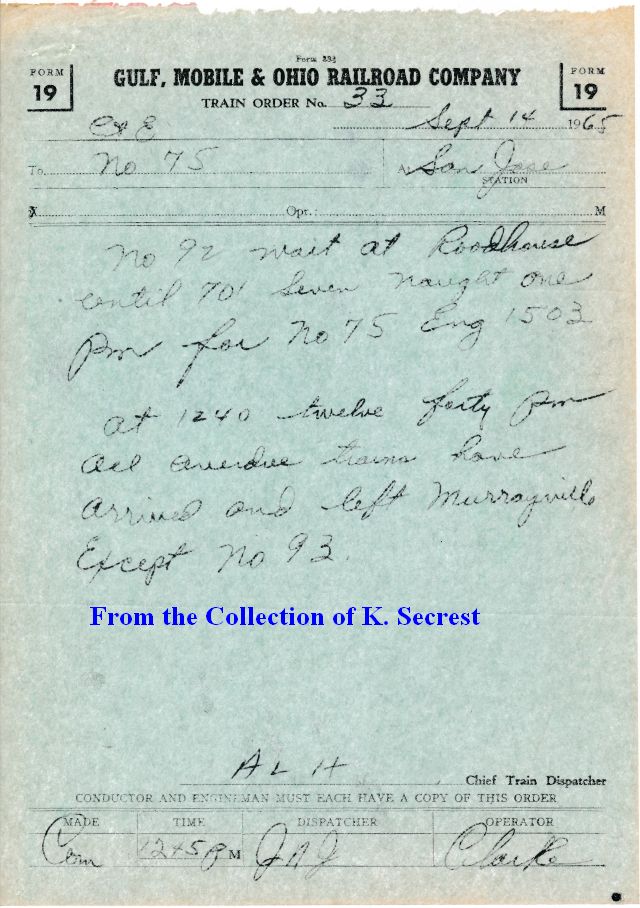 Form 334
FORM 19 GULF, MOBILE & OHIO RAILROAD COMPANY FORM 19
TRAIN ORDER No. 33
Sept 14 1965
C&E
To No 75 At San Jose
STATION
X Opr.: M
No 92 wait at Roodhouse
until 701 Seven naught one
Pm for No 75 Eng 1503
At 1240 twelve forty Pm
All overdue trains have
arrived and left Murrayville
Except No 93.
From the Collection of K. Secrest
A L H Chief Train Dispatcher
CONDUCTOR AND ENGINEMAN MUST EACH HAVE A COPY OF THIS ORDER
MADE TIME DISPATCHER OPERATOR
Com 1245 P M Clarke